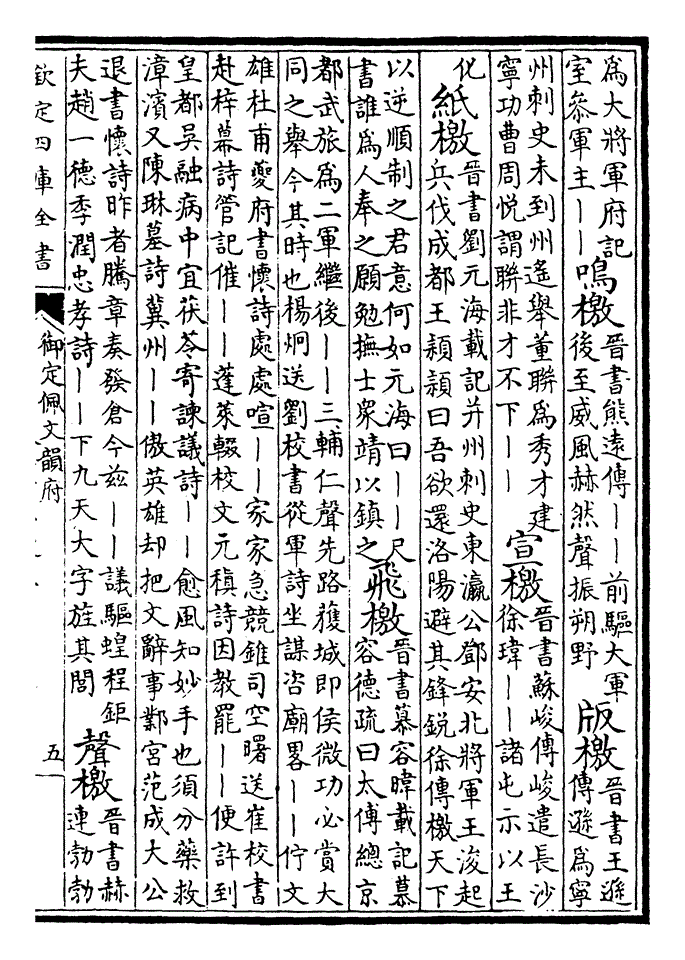 為大將軍府記
室參軍主丨丨
鳴檄
晉書熊遠傳丨丨前驅大軍
後至威風赫然聲振朔野
版檄
晉書王遜
傳遜為寧
州刺史未到州遙舉董聯為秀才建
寧功曹周悅謂聯非才不下丨丨
宣檄
晉書蘇峻傳峻遣長沙
徐瑋丨丨諸屯示以王
化
紙檄
晉書劉元海載記并州刺史東瀛公鄧安北將軍王浚起
兵伐成都王頴頴曰吾欲還洛陽避其鋒銳徐傳檄天下
以逆順制之君意何如元海曰丨丨尺
書誰為人奉之願勉撫士衆靖以鎮之
飛檄
晉書慕容暐載記慕
容德疏曰太傅總京
都武旅為二軍繼後丨丨三輔仁聲先路獲城即侯微功必賞大
同之舉今其時也楊炯送劉校書從軍詩坐謀咨廟畧丨丨佇文
雄杜甫夔府書懷詩處處喧丨丨家家急競錐司空曙送崔校書
赴梓幕詩管記催丨丨蓬萊輟校文元稹詩因教罷丨丨便許到
皇都吳融病中宜茯苓寄諫議詩丨丨愈風知妙手也須分藥救
漳濱又陳琳墓詩冀州丨丨傲英雄却把文辭事鄴宮范成大公
退書懷詩昨者騰章奏發倉今茲丨丨議驅蝗程鉅
夫趙一德季潤忠孝詩丨丨下九天大字旌其閭
聲檄
晉書赫
連勃勃
欽定四庫全書
御定佩文韻府
五